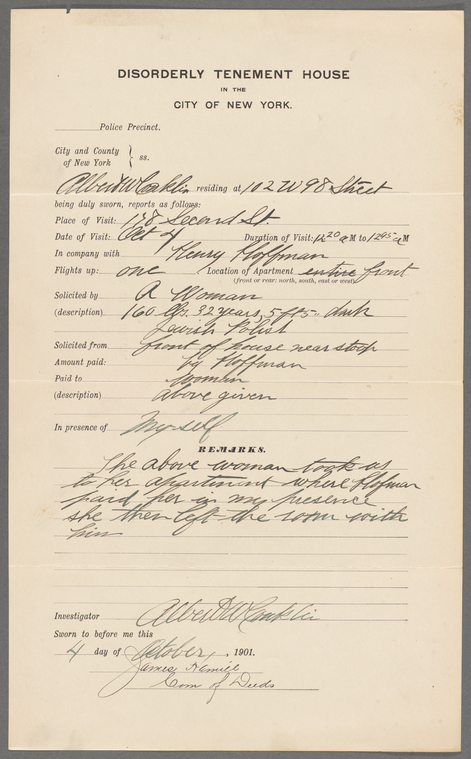 DISORDERLY TENEMENT HOUSE
IN THE
CITY OF NEW YORK.
Police Precinct.
City and County
of New York } ss.
Albert W Conklin residing at 102 W 98 Street
being duly sworn, reports as follows:
Place of Visit: Second St.
Date of Visit: Oct 4 Duration of Visit: 12 20 a M to 12 45 a M
In company with Henry Hoffman
Flights up: one Location of Apartment entire front
(front or rear: north, south, east or west)
Solicited by A Woman
(description) 160 lbs. 32 years, 5 ft 5" dark
Jewish Polish
Solicited from front of house near stoop
Amount paid: by Hoffman
Paid to woman
(description) above given
In presence of Myself
REMARKS.
The above woman took us
to her apartment where Hoffman
paid her in my presence
she then left the room with
him
Investigator Albert W Conklin
Sworn to before me this
4 day of October, 1901.
James
Com of Deeds